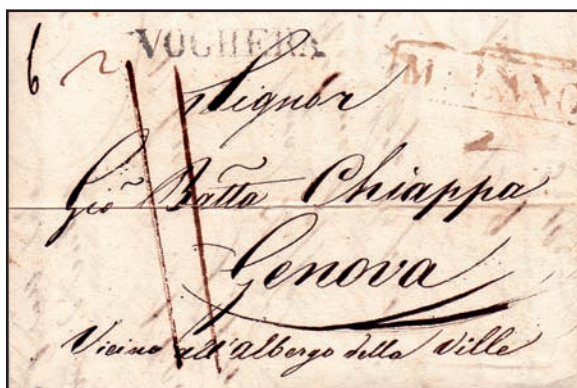 6
VOGHERA
MILANO
Signor
Gio Batta Chiappa
Genova
Vicino all'Albergo della Ville